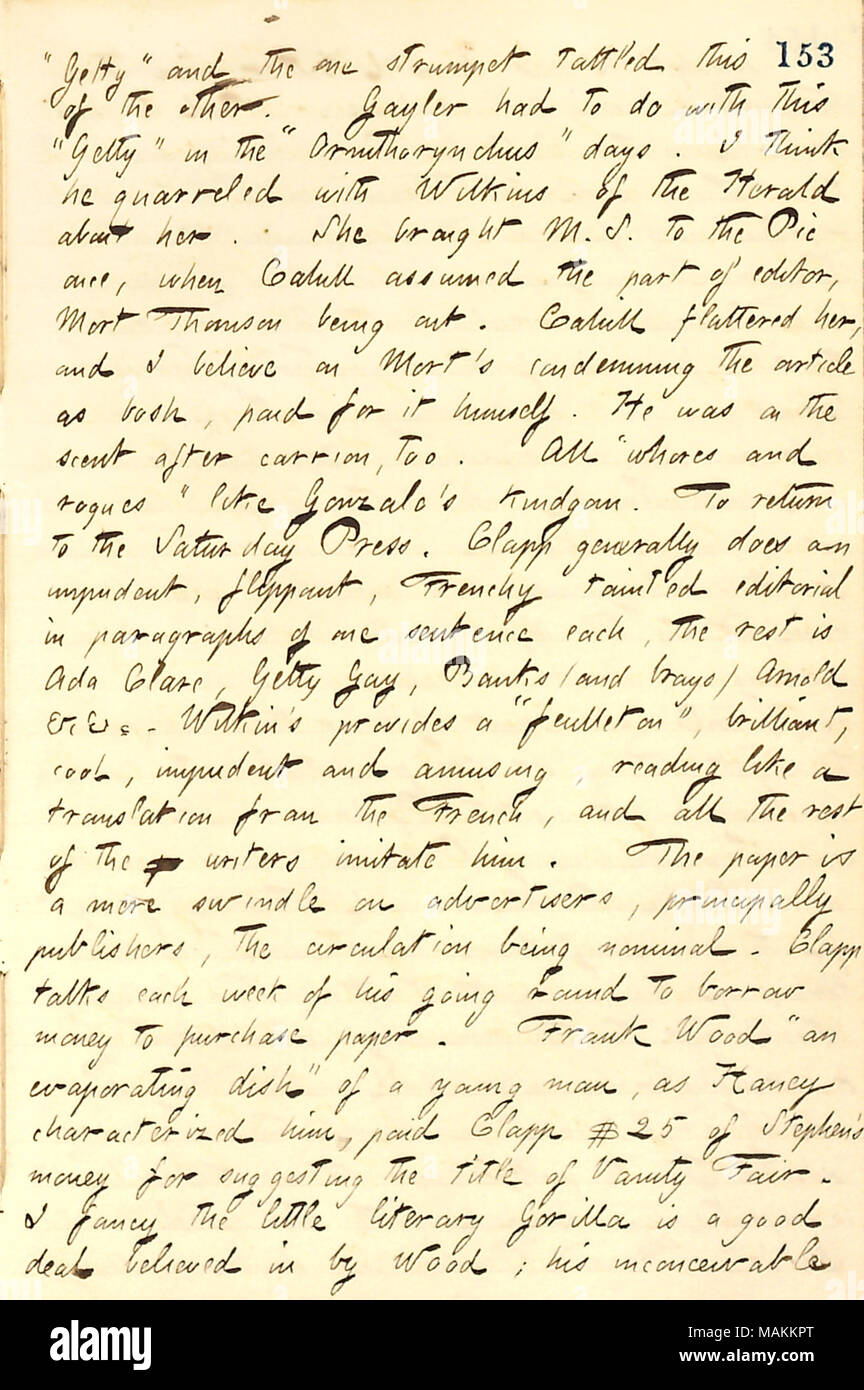 "Getty" and the one strumpet tattled this 153
of the other. Gayler had to do with this
"Getty" in the "Ornithorynchus" days. I think
he quarreled with Wilkins of the Herald
about her. She brought M.S. to the Pic
once, when Cahill assumed the part of editor,
Mort Thomson being out. Cahill flattered her,
and I believe on Mort's condemning the article
as bosh, paid for it himself. He was on the
scent after carrion, too. All "whores and
rogues" like Gonzalo's kindgom. To return
to the Saturday Press. Clapp generally does an
impudent, flippant, Frenchy tainted editorial
in paragraphs of one sentence each, the rest is
Ada Clare, Getty Gay, Banks (and brays) Arnold
&c &c. - Wilkin's provides a "feulleton", brilliant,
cool, impudent and amusing, reading like a
translation from the French, and all the rest
of the writers imitate him. The paper is
a mere swindle on advertisers, principally
publishers, the circulation being nominal. Clapp
talks each week of his going round to borrow
money to purchase paper. Frank Wood "an
evaporating dish" of a young man, as Haney
characterized him, paid Clapp $25 of Stephen's
money for suggesting the title of Vanity Fair.
I fancy the little literary Gorilla is a good
deal believed in by Wood; his inconceivable
alamy
Image ID: MAKKPT
www.alamy.com